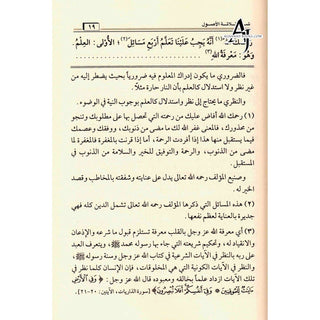 شرح ثلاثة الأصول
١٩
رحمك الله(١) أنه يجب علينا تعلم أربع مسائل(٢)؛ الأولى: العلم.
وهو: معرفة الله(٣)
فالضروري ما يكون إدراك المعلوم فيه ضرورياً بحيث يضطر إليه من
غير نظر ولا استدلال كالعلم بأن النار حارة مثلاً.
والنظري ما يحتاج إلى نظر واستدلال كالعلم بوجوب النية في الوضوء.
(١) رحمك الله أفاض عليك من رحمته التي تحصل بها على مطلوبك وتنجو
من محذورك، فالمعنى غفر الله لك ما مضى من ذنوبك، ووفقك وعصمك
فيما يستقبل منها هذا إذا أفردت الرحمة، أما إذا قرنت بالمغفرة فالمغفرة لما
مضى من الذنوب، والرحمة والتوفيق للخير والسلامة من الذنوب في
المستقبل.
وصنيع المؤلف رحمه الله تعالى يدل على عنايته وشفقته بالمخاطب وقصد
الخير له.
(٢) هذه المسائل التي ذكرها المؤلف رحمه الله تعالى تشمل الدين كله فهي
جديرة بالعناية لعظم نفعها.
(٣) أي معرفة الله عز وجل بالقلب معرفة تستلزم قبول ما شرعه والإذعان
والانقياد له، وتحكيم شريعته التي جاء بها رسوله محمد ﷺ، ويتعرف العبد
على ربه بالنظر في الآيات الشرعية في كتاب الله عز وجل وسنة رسوله ﷺ،
والنظر في الآيات الكونية التي هي المخلوقات، فإن الإنسان كلما نظر في
تلك الآيات ازداد علماً بخالقه ومعبوده قال الله عز وجل: ﴿وفي الأرض
آيات للموقنين * وفي أنفسكم أفلا تبصرون﴾ [سورة الذاريات، الآيتين: ٢٠-٢١].